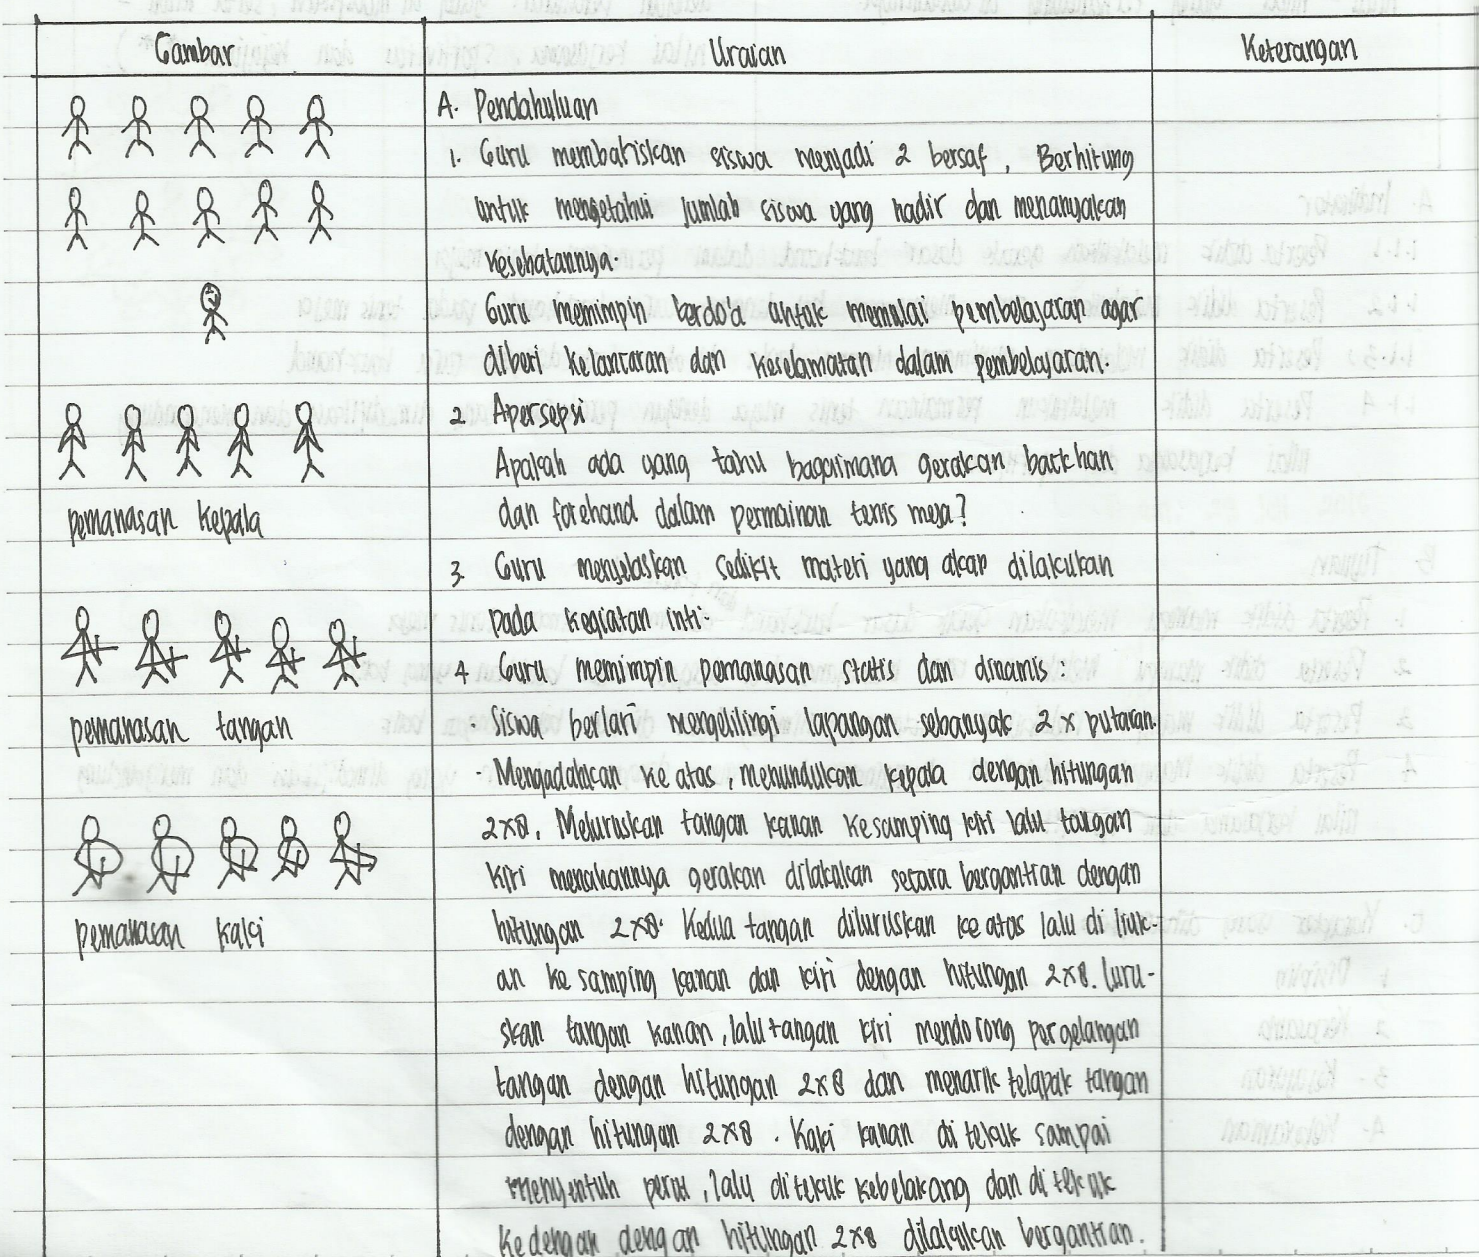 Gambar
Uraian
Keterangan
A. Pendahuluan
1. Guru membariskan siswa menjadi 2 bersaf, Berhitung
untuk mengetahui jumlah siswa yang hadir dan menanyakan
kesehatannya.
Guru memimpin berdo'a untuk memulai pembelajaran agar
diberi kelancaran dan keselamatan dalam pembelajaran.
2. Apersepsi
Apakah ada yang tahu bagaimana gerakan backhan
dan forehand dalam permainan tenis meja?
3. Guru menjelaskan sedikit materi yang akan dilakukan
pada kegiatan inti.
4. Guru memimpin pemanasan statis dan dinamis :
- Siswa berlari mengelilingi lapangan sebanyak 2x putaran.
- Mengadahkan ke atas, menundukkan kepala dengan hitungan
2x8. Meluruskan tangan kanan kesamping kiri lalu tangan
kiri menahannya gerakan dilakukan secara bergantian dengan
hitungan 2x8. Kedua tangan diluruskan ke atas lalu di liuk-
an ke samping kanan dan kiri dengan hitungan 2x8. Luru-
skan tangan kanan, lalu tangan kiri mendorong pergelangan
tangan dengan hitungan 2x8 dan menarik telapak tangan
dengan hitungan 2x8. Kaki kanan di tekuk sampai
menyentuh perut, lalu ditekuk kebelakang dan di tekuk
kedengan dengan hitungan 2x8 dilakukan bergantian.
pemanasan kepala
pemanasan tangan
pemanasan kaki